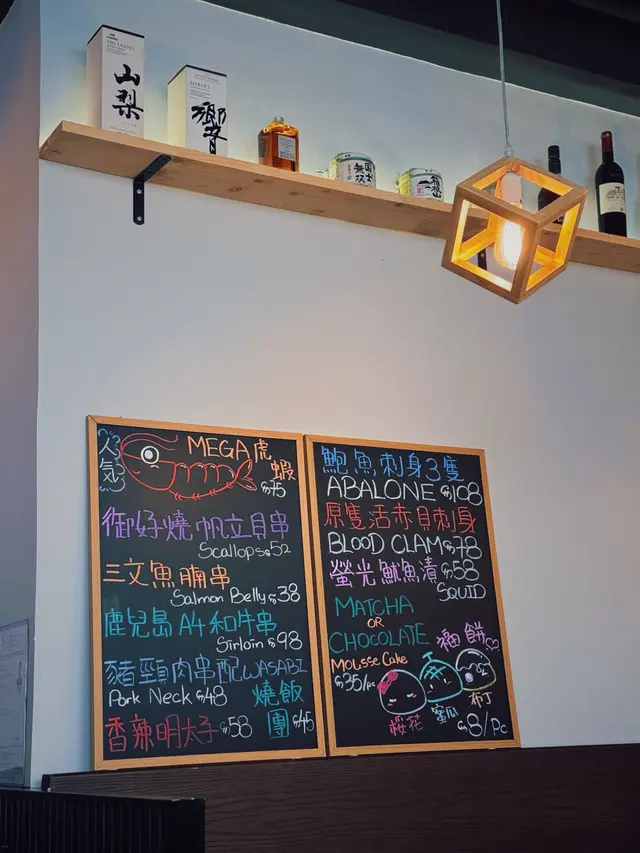 山梨
響
人氣
MEGA虎蝦
$75
御好燒帆立貝串
Scallops $52
三文魚腩串
Salmon Belly $38
鹿兒島A4和牛串
Sirloin $98
豬頸肉串配WASABI
Pork Neck $48
燒飯團 $45
香辣明太子 $58
鮑魚刺身3隻
ABALONE $108
原隻活赤貝刺身
BLOOD CLAM $78
螢光魷魚漬 $58
SQUID
MATCHA
OR
CHOCOLATE
Mousse Cake
$35/pc
福餅
櫻花
蜜瓜
布丁
$8/Pc